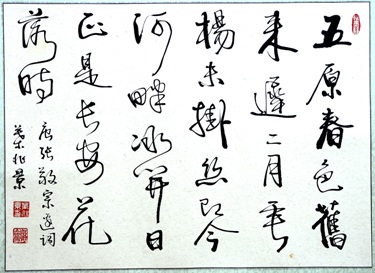 五原春色舊
来遲二月垂
楊未掛絲即今
河畔冰開日
正是長安花
落時
唐張敬宗邊詞